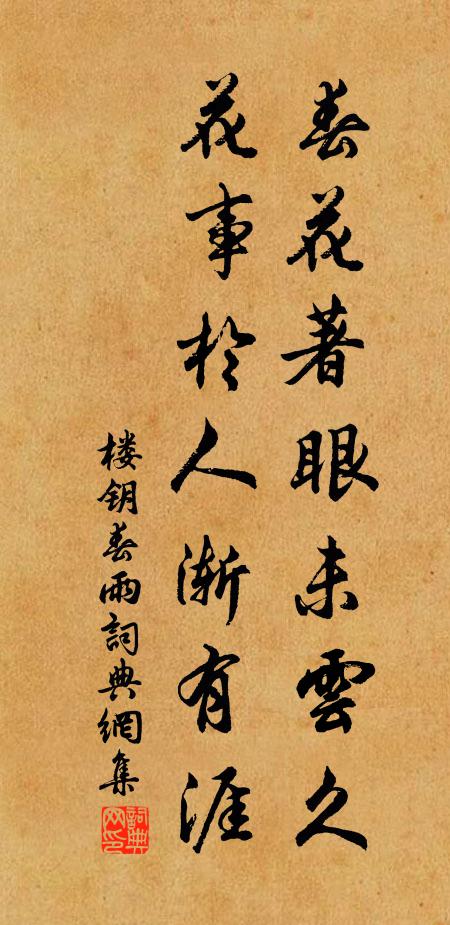 春花著眼未雲久
花事於人漸有涯
楼钥春雨詞典網集
詞典网印